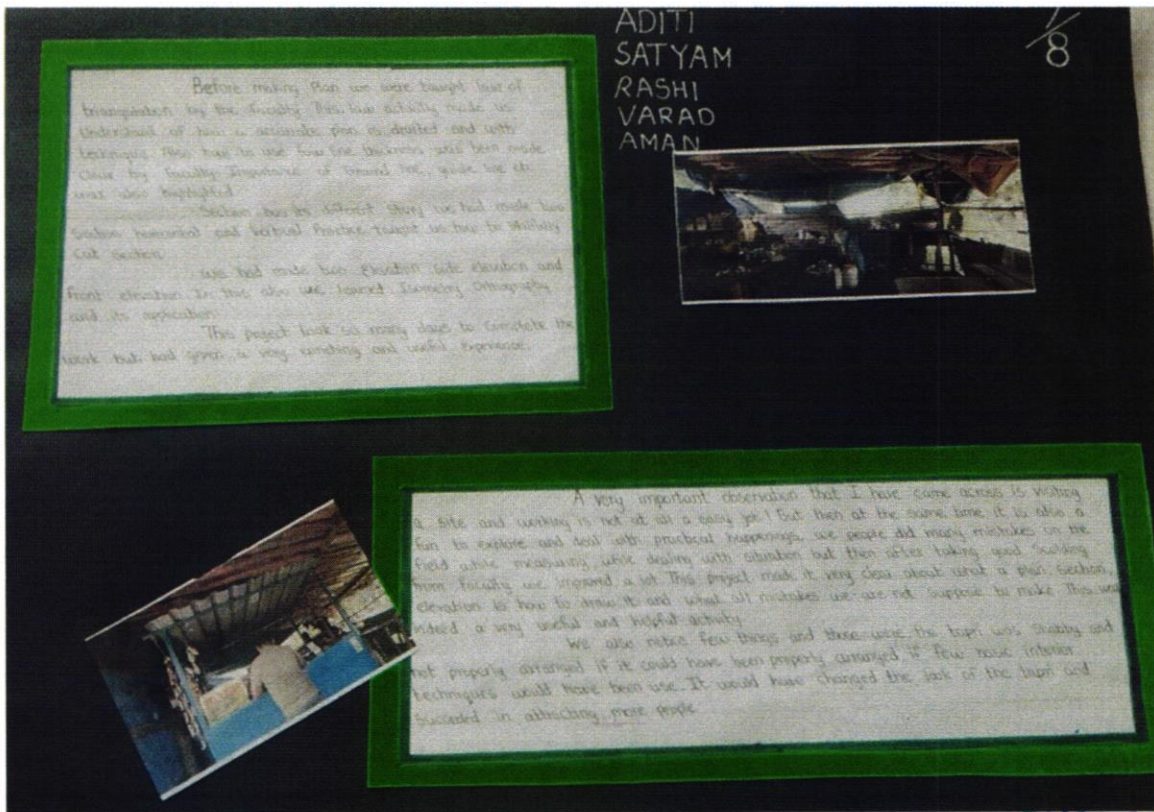 Before making Plan we were taught law of
triangulation by the faculty This law actually made us
Understand of how a accurate plan is drafted and with
technique Also how to use few line thickness was been made
clear by faculty Importance of Ground line, guide line etc
was also highlighted
Section has its different Story we had made two
Section horizontal and Vertical Practice taught us how to
Cut section
we had made two Elevation side elevation and
front elevation In this also we learned Isometry Orthography
and its application
This project took so many days to complete the
work but had given a very enriching and useful Experience.
ADITI
SATYAM
RASHI
VARAD
AMAN
1/8
A very important observation that I have came across is visiting
a site and working is not at all a easy job! But then at the same time it is also a
fun to explore and deal with practical happenings, we people did many mistakes on the
field while measuring, while dealing with situation but then after taking good
from faculty we improved a lot This project made it very clear about what a plan, section,
elevation is how to draw it and what all mistakes we are not suppose to make This was
indeed a very useful and helpful activity
We also notice few things and those were the tapri was shabby and
not properly arranged if it could have been properly arranged if few basic interior
techniques would have been use. It would have changed the look of the tapri and
Succeded in attracting more people